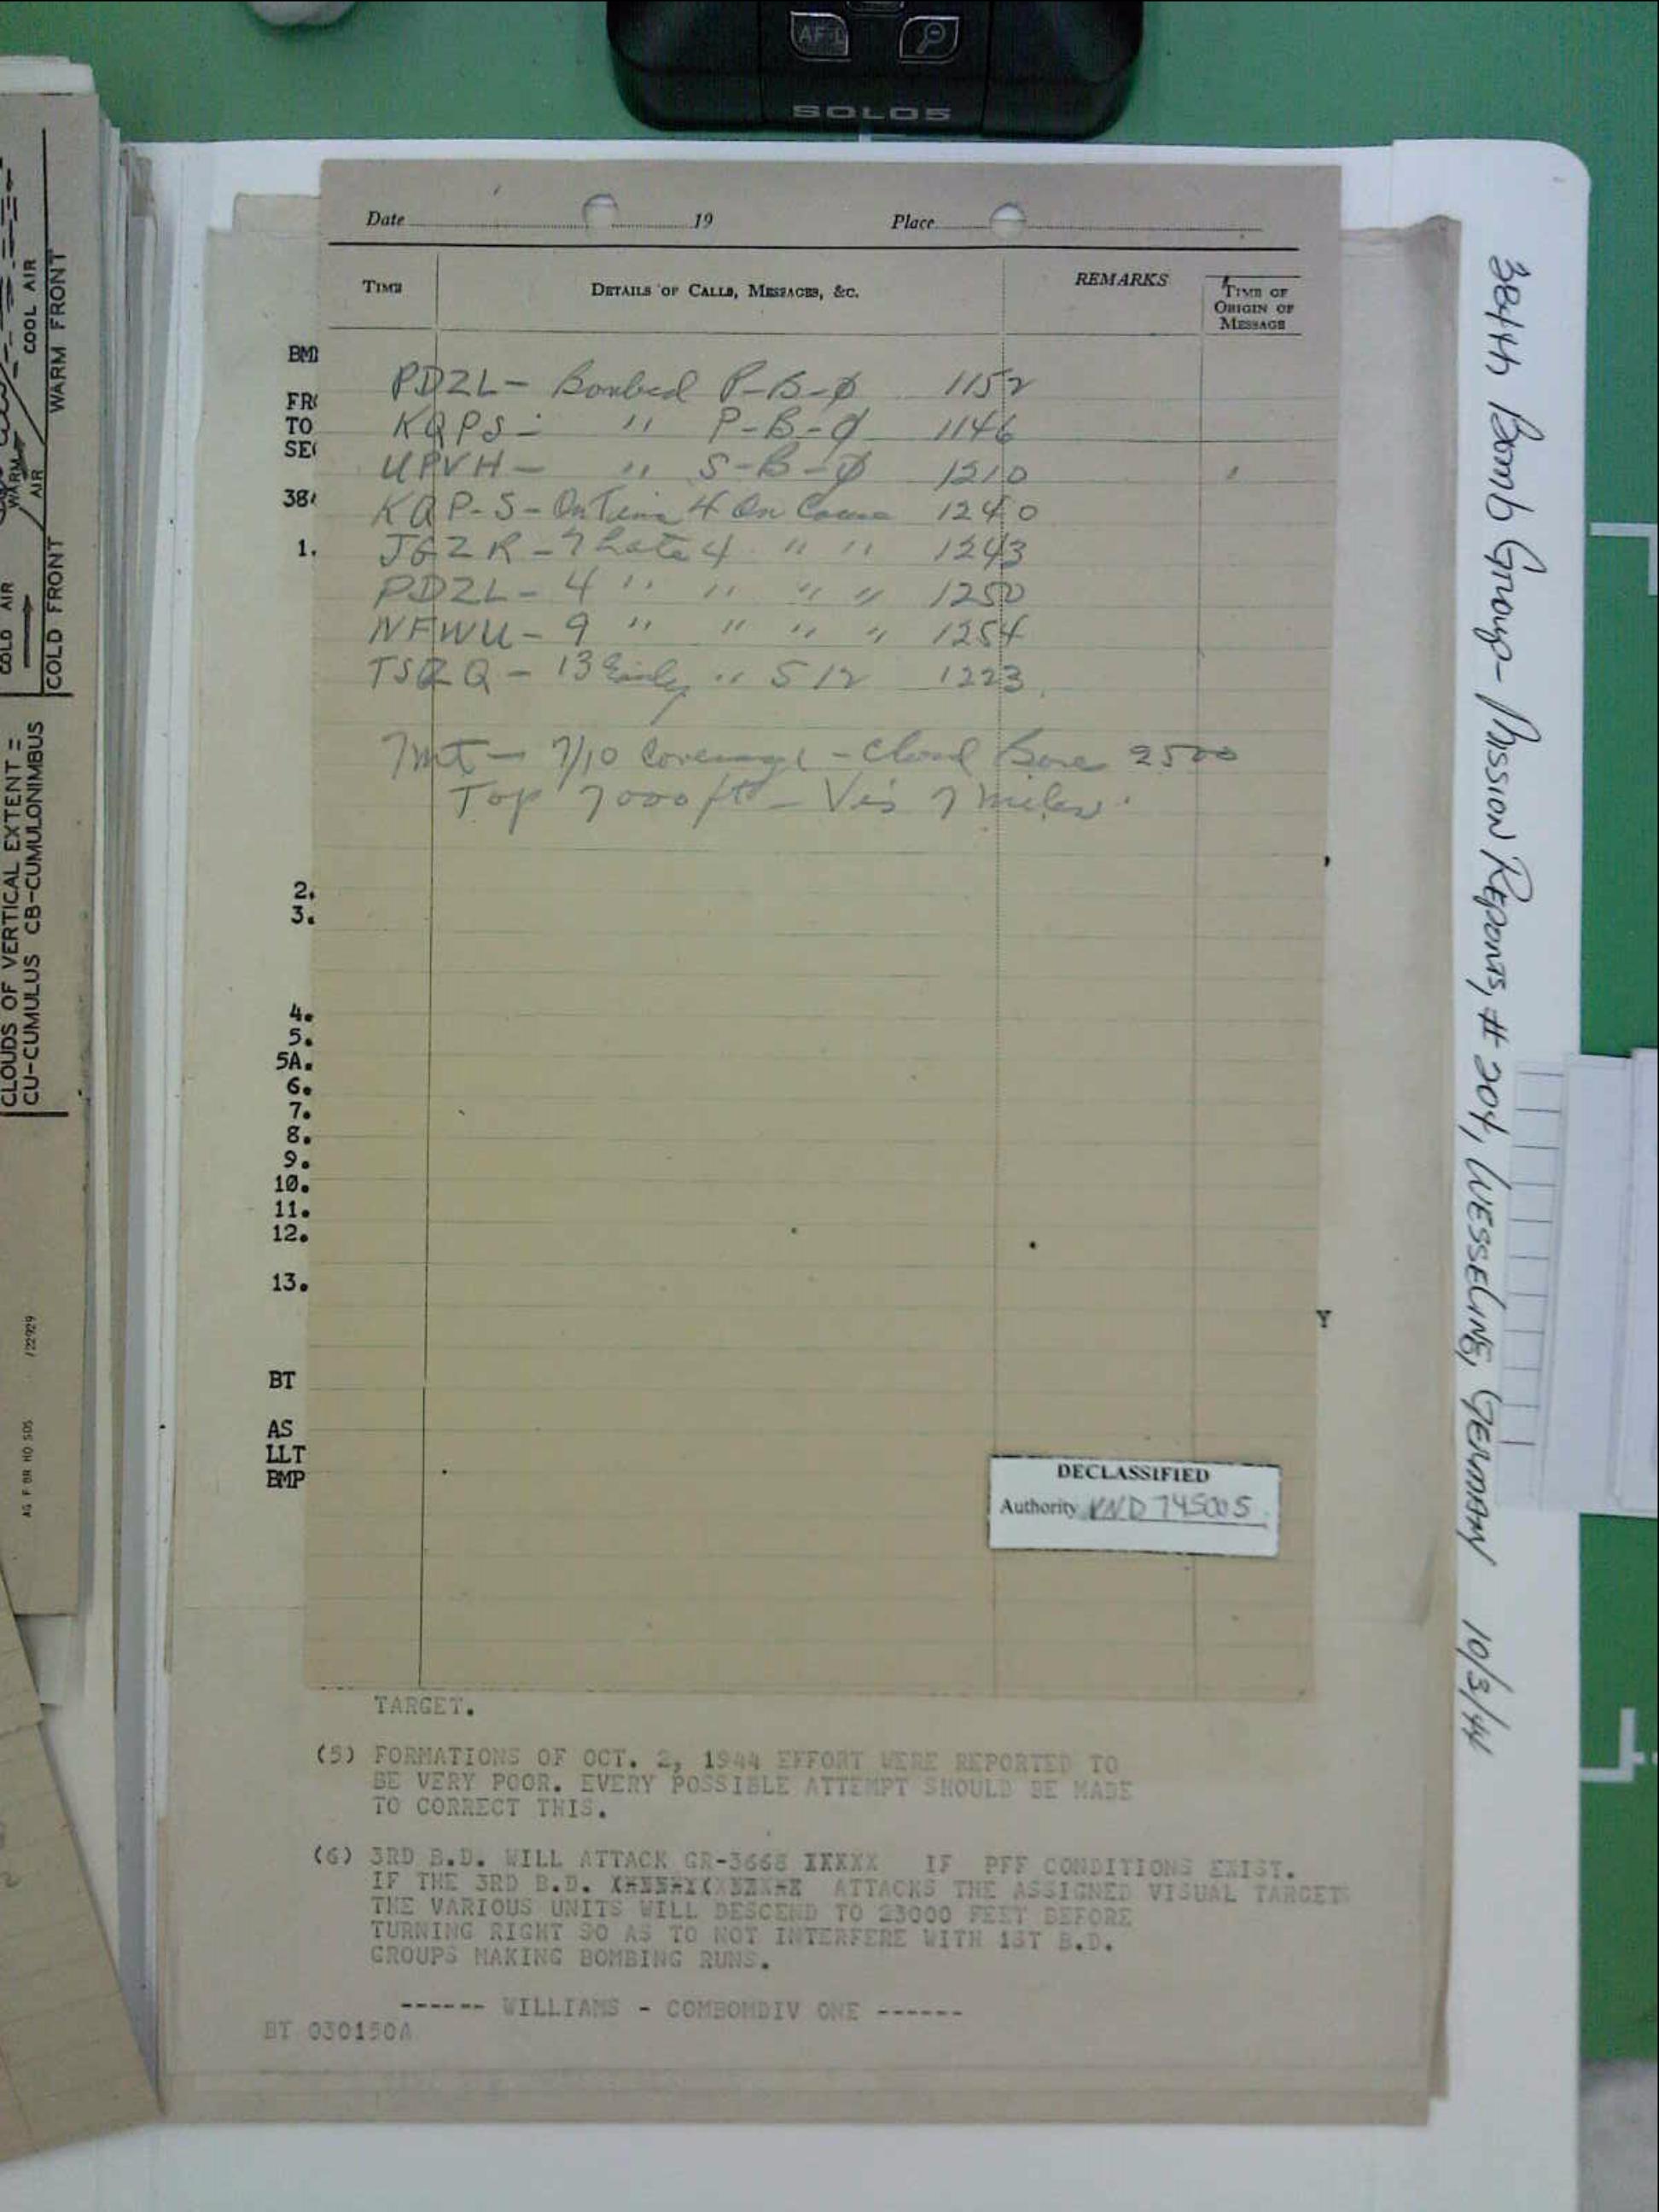 AF-L
SOLO5
Date 19 Place
TIME DETAILS OF CALLS, MESSAGES, &C. REMARKS TIME OF ORIGIN OF MESSAGE
PDZL - Bombed P-B-Ø 1152
KQPS - " P-B-Ø 1146
UPVH - " S-B-Ø 1210
KQP-S - On Time 4 On Course 1240
JGZR - 7 Late 4 " " 1243
PDZL - 4 " " " " 1250
NFWU - 9 " " " " 1254
TSRQ - 13 Early " 512 1223
7/10 Coverage - Cloud Base 2500
Top 7000 ft - Vis 7 miles.
BM
FR
TO
SE
38
1.
2.
3.
4.
5.
5A.
6.
7.
8.
9.
10.
11.
12.
13.
Y
BT
AS
LLT
BMP
DECLASSIFIED
Authority NND 745005
TARGET.
(5) FORMATIONS OF OCT. 2, 1944 EFFORT WERE REPORTED TO
BE VERY POOR. EVERY POSSIBLE ATTEMPT SHOULD BE MADE
TO CORRECT THIS.
(6) 3RD B.D. WILL ATTACK GR-3668 IF PFF CONDITIONS EXIST.
IF THE 3RD B.D. ATTACKS THE ASSIGNED VISUAL TARGET
THE VARIOUS UNITS WILL DESCEND TO 23000 FEET BEFORE
TURNING RIGHT SO AS TO NOT INTERFERE WITH 1ST B.D.
GROUPS MAKING BOMBING RUNS.
------ WILLIAMS - COMBOMDIV ONE ------
BT 030150A
384th Bomb Group - Mission Reports, # 204, WESSELING, GERMAN 10/3/44
WARM AIR
COOL AIR
WARM FRONT
COLD AIR
COLD FRONT
CLOUDS OF VERTICAL EXTENT =
CU-CUMULUS CB-CUMULONIMBUS
/22929